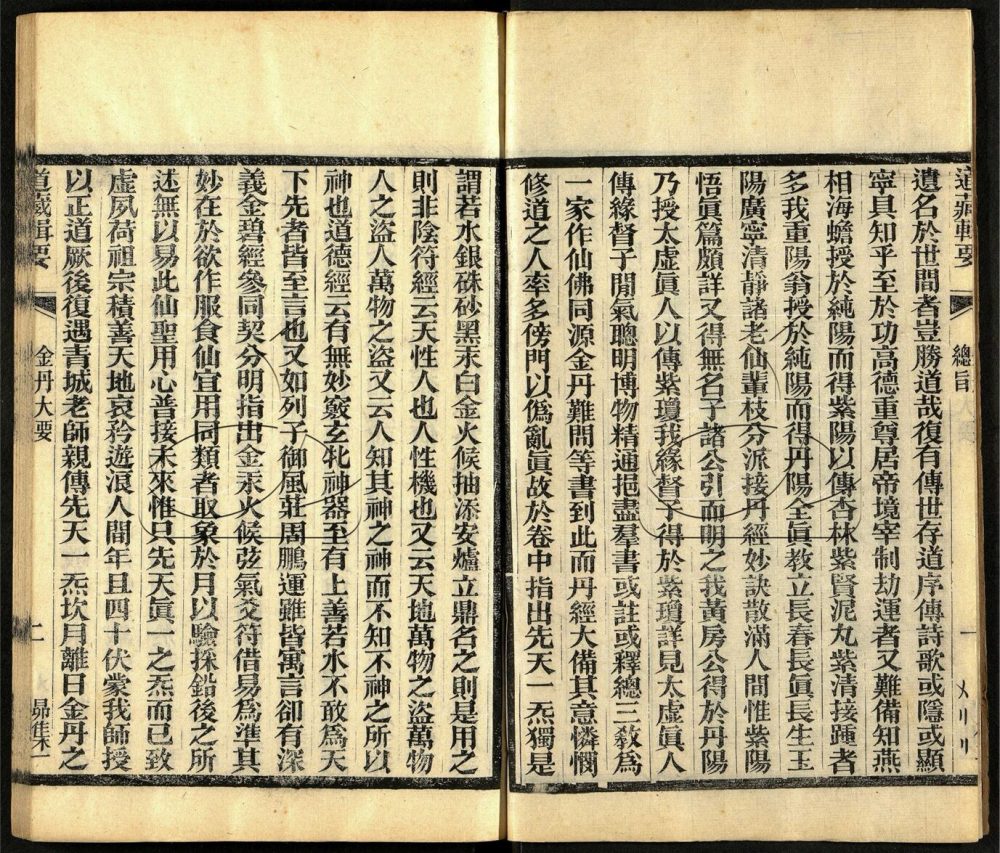 道藏輯要 總目 一
遺名於世間者豈勝道哉復有傳世存道序傳詩歌或隱或顯
寧具知乎至於功高德重尊居帝境宰制劫運者又難備知燕
相海蟾授於純陽而得紫陽以傳杏林紫賢泥丸紫清接踵者
多我重陽翁授於純陽而得丹陽全眞教立長春長眞長生玉
陽廣寧清靜諸老仙輩枝分派接丹經妙訣散滿人間惟紫陽
悟眞篇頗詳又得無名子諸公引而明之我黃房公得於丹陽
乃授太虛眞人以傳紫瓊我緣督子得於紫瓊詳見太虛眞人
傳緣督子閒氣聰明博物精通挹盡羣書或註或釋總三敎爲
一家作仙佛同源金丹難問等書到此而丹經大備其意憐憫
修道之人率多傍門以僞亂眞故於卷中指出先天一炁獨是
謂若水銀硃砂黑汞白金火候抽添安爐立鼎名之則是用之
則非陰符經云天性人也人性機也又云天地萬物之盜萬物
人之盜人萬物之盜又云人知其神之神而不知不神之所以
神也道德經云有無妙竅玄牝神器至有上善若水不敢爲天
下先者皆至言也又如列子御風莊周鵬運雖皆寓言卻有深
義金碧經參同契分明指出金汞火候弦氣爻符借易爲準其
妙在於欲作服食仙宜用同類者取象於月以驗採鉛後之所
述無以易此仙聖用心普接未來惟只先天眞一之炁而已致
虛夙荷祖宗積善天地哀矜遊浪人間年且四十伏蒙我師授
以正道厥後復遇青城老師親傳先天一炁坎月離日金丹之
道藏輯要 金丹大要 二 昴集一